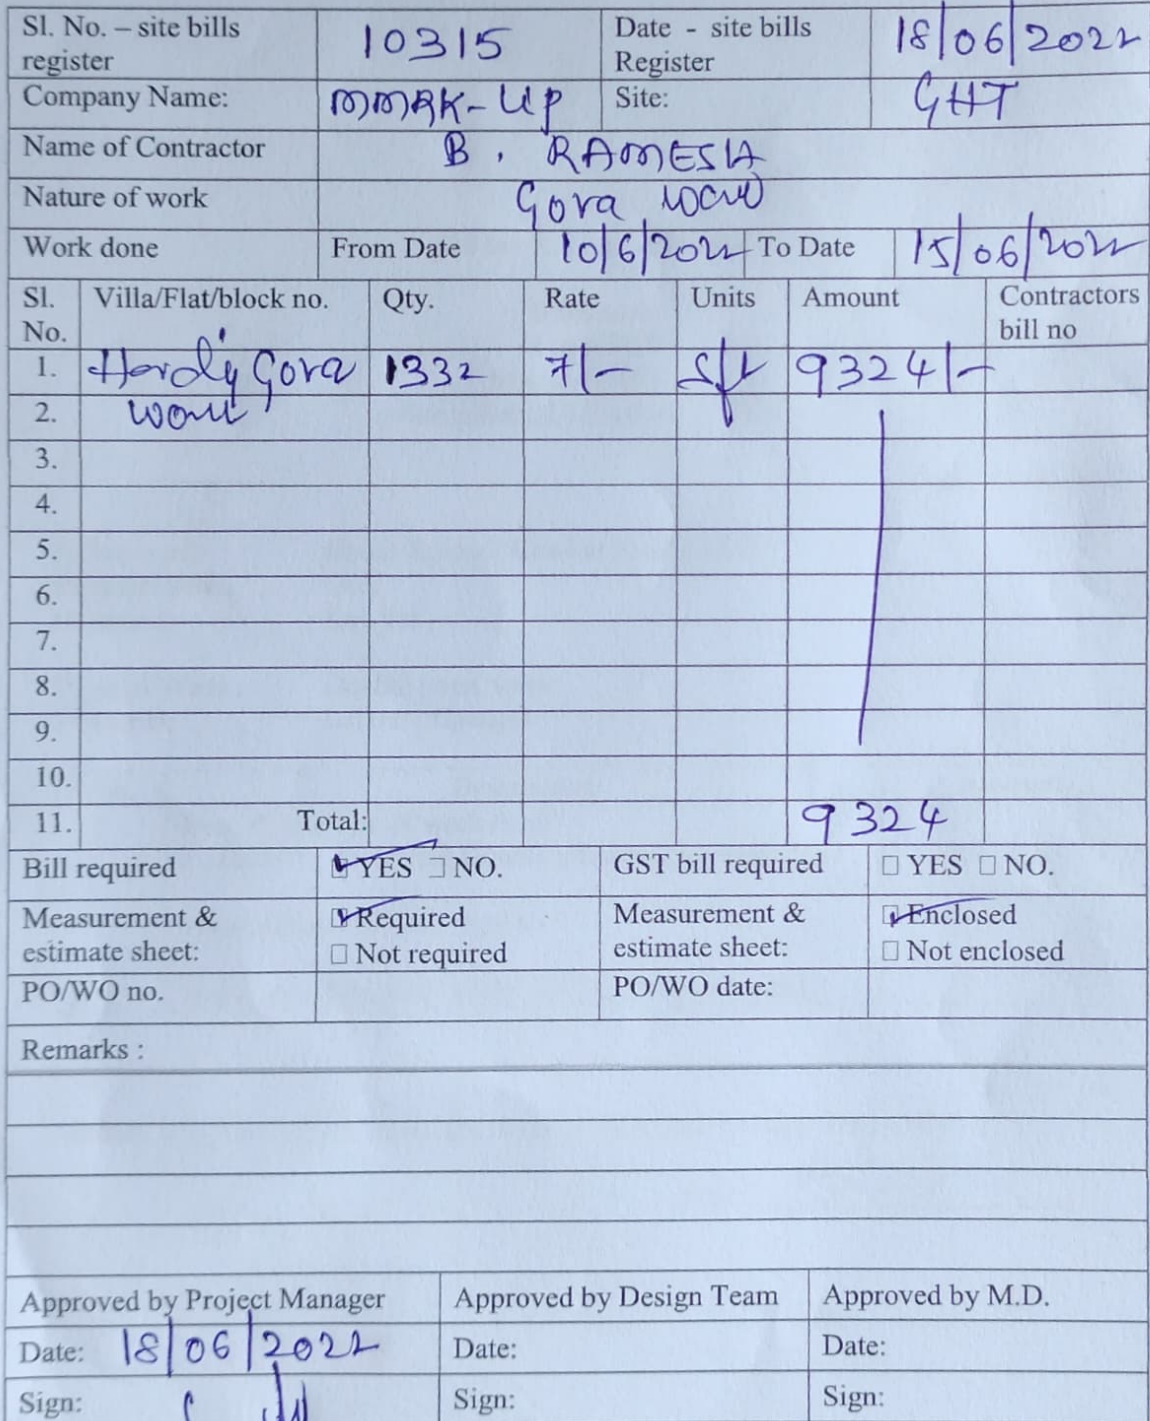 Sl. No. – site bills register 10315 Date - site bills Register 18/06/2022
Company Name: MMRK-UP Site: GHT
Name of Contractor B. RAMESH
Nature of work Gova work
Work done From Date 10/6/2022 To Date 15/06/2022
Sl. No. Villa/Flat/block no. Qty. Rate Units Amount Contractors bill no
1. Gova 1332 7/- sft 9324/-
2. work
3.
4.
5.
6.
7.
8.
9.
10.
11. Total: 9324
Bill required YES NO. GST bill required YES NO.
Measurement & estimate sheet: Required Measurement & estimate sheet: Enclosed
Not required Not enclosed
PO/WO no. PO/WO date:
Remarks :
Approved by Project Manager Approved by Design Team Approved by M.D.
Date: 18/06/2022 Date: Date:
Sign: Sign: Sign: